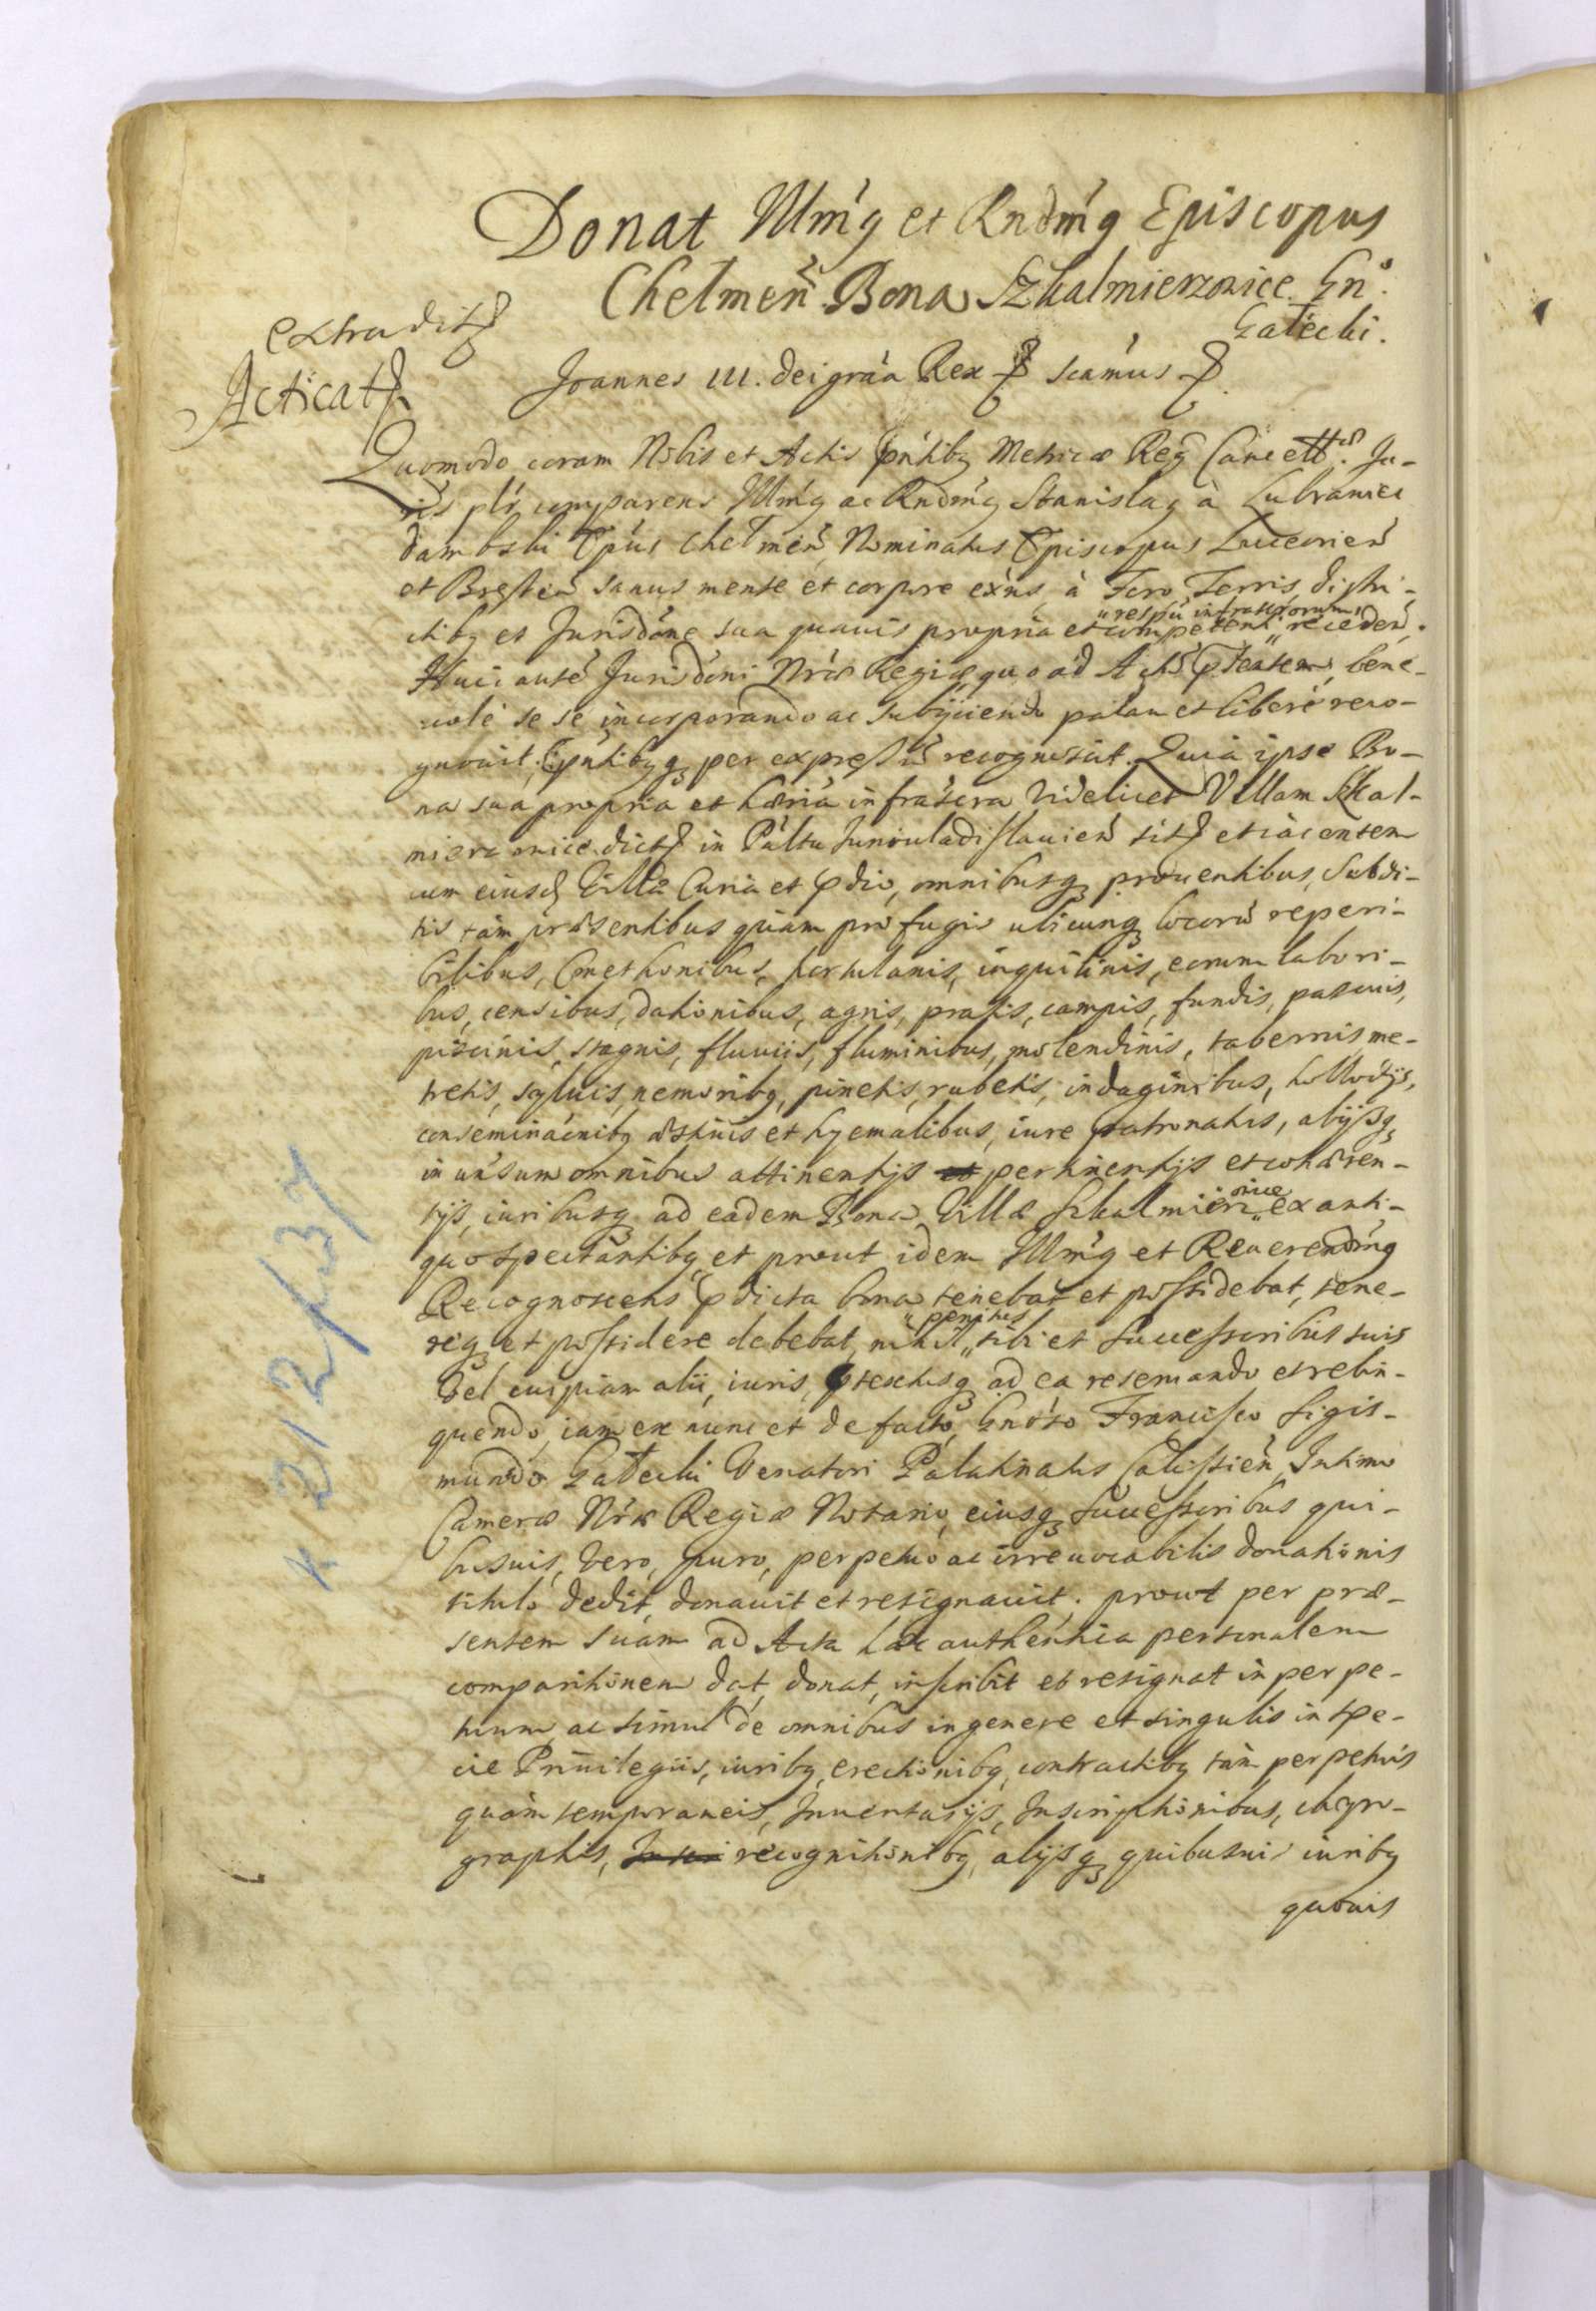 Donat Illm'g et Rndm'g Episcopus
Chelmeñ. Bona Szkalmierzowice Gn°.
Gałecki.
extradit
Acticat
Joannes III. Dei gra'a Rex scamus
Quomodo coram Nobis et Actis pntibg Metricæ Reg Cancell. Ju-
ris plr' comparens Illm'g ac Rndm'g Stanislag à Lubraniec
Dambski Epus Chelmeñ, Nominatus Episcopus Luceorieñ
et Bresteñ sanus mente et corpore exñs, à Foro, Terris, distri-
ctibg et Jurisdõne sua quavis propria et competenti „respũ infrascriptorum„ recedeñ.
Huic autẽ Jurisdõni Nr'æ Regiæ, quo ad Actũ pñtem, bene-
vole se se incorporando ac subijciendo palam et libere reco-
gnovit. pntibgq per expressũ recognoscit. Quia ipse Bo-
na sua propria et hæria infrascra videlicet Villam Szkal-
mierzowice dict in Paltu Junivladislavień sit et iacentem
cum eiusd Villæ Curia et pdio, omnibusq proventibus, Subdi-
tis, tàm præsentibus quàm profugis ubicunq locorũ reperi-
bilibus, Cmethonibus, hortulanis, inquilinis, eorum labori-
bus, censibus, dationibus, agris, pratis, campis, fundis, pascuis,
piscinis, stagnis, fluviis, fluminibus, molendinis, tabernis me-
tretis, sylvis, nemoribg, pinetis, rubetis, indaginibus,
conseminac'nibg æstivis et hyemalibus, iure patronatus, alijsq
in uñsum omnibus attinentijs et pertinentijs et cohæren-
tijs, iuribusq ad eadem Bona Villæ Szkalmierz„owice„ ex anti-
quo spectantibg, et prout idem Illm'g et Reverendm'g
Recognoscens pdicta bona tenebat et possidebat, tene-
req et possidere debebat, nihil „penitus„ sibi et Successoribus suis
Vel cuipiam alii, iuris, ptextusq ad ea reservando et relin-
quendo, iam ex nunc et de facto, Gnoso Francisco Sigis-
mundo Gałecki Venatori Palatinatus Calissień, Intimo
Cameræ Nr'æ Regiæ Notario, eiusq Successoribus qui-
busvis, Vero, puro, perpetuò ac irrevocabilis donationis
titulo dedit, donavit et resignavit. prout per præ-
sentem suam ad Acta hæc authentica personalem
comparitionem dat, donat, inscribit et resignat in perpe-
tuum, ac simul de omnibus in genere et singulis in spe-
cie Privilegiis, iuribg, erectionibg, contractibg tàm perpetuis
quàm temporaneis, Inventarijs, Inscriptionibus, chyro-
graphis, recognitionibg, alijsq quibusvis iuribg
quovis